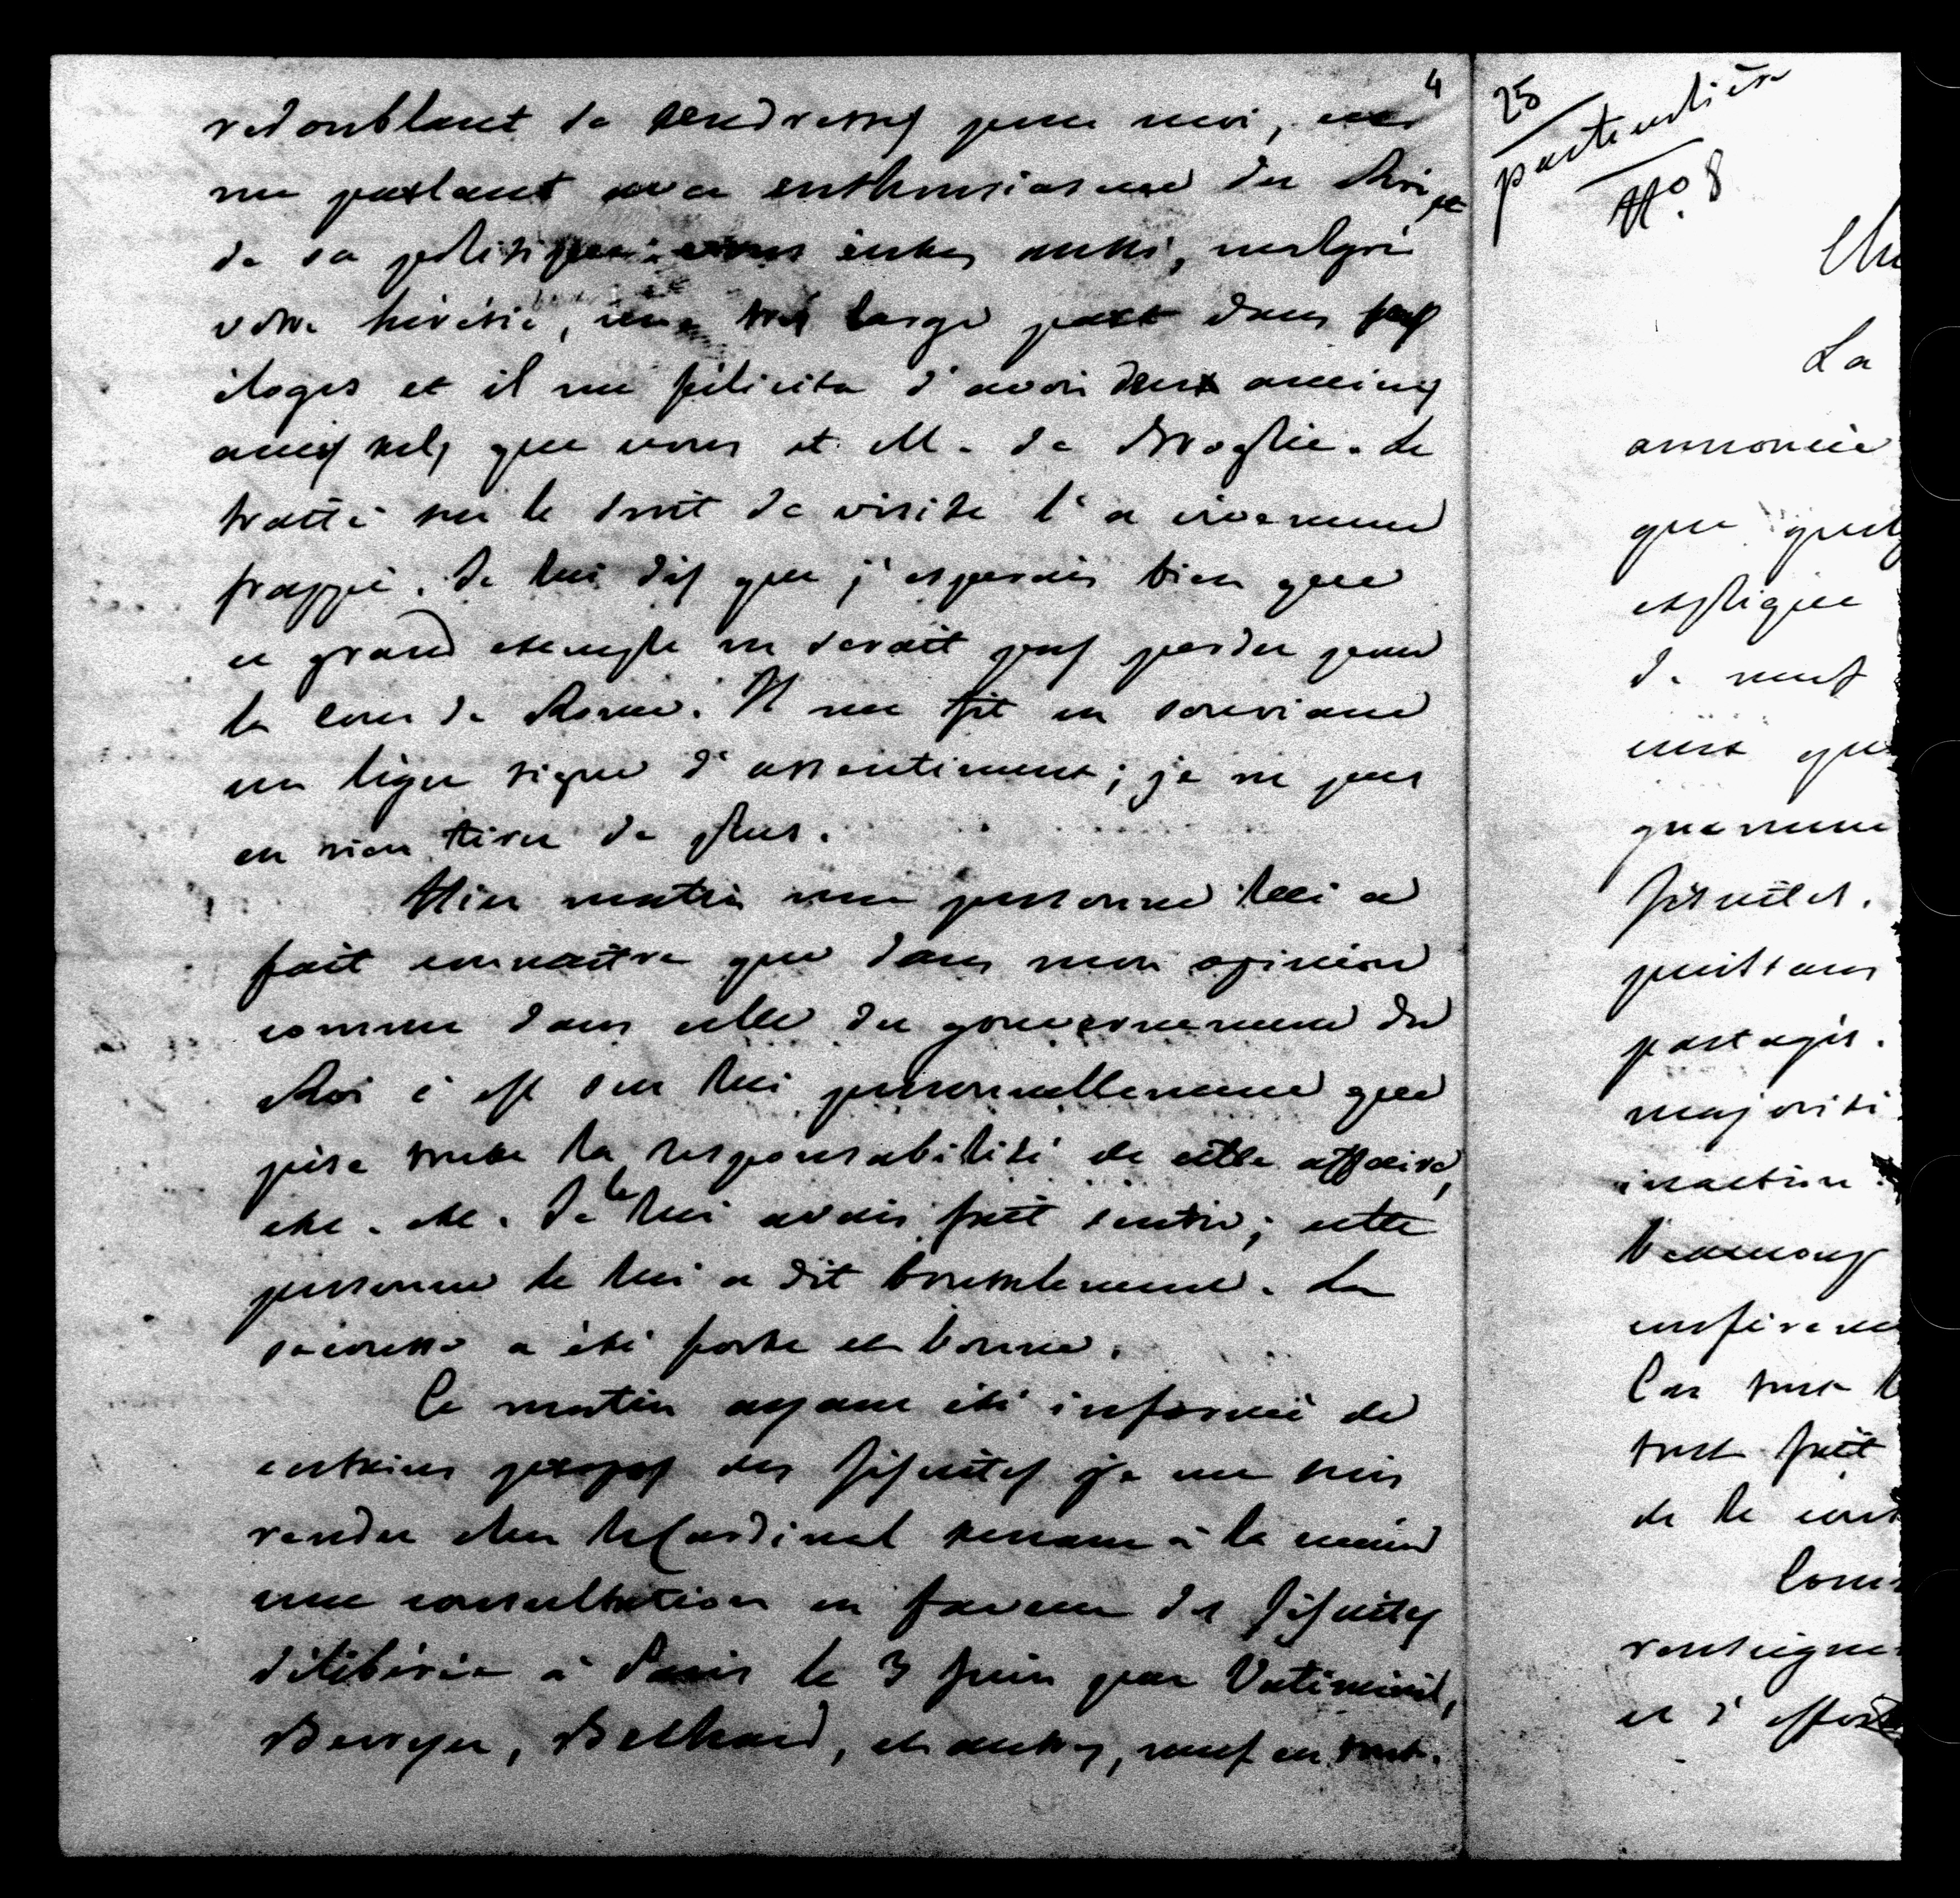 4
redoublant de tendresses pour moi, en
me parlant avec enthousiasme du Roi et
de sa politique : vous eûtes aussi, malgré
votre hérésie, une très large part dans ses
éloges et il me félicita d'avoir deux anciens
amis tels que vous et M. de Broglie. Le
traité sur le droit de visite l'a vivement
frappé. Je lui dis que j'espérais bien que
ce grand exemple ne serait pas perdu pour
la cour de Rome. Il me fit en souriant
un léger signe d'assentiment ; je ne pus
en rien tirer de plus.
Hier matin une personne lui a
fait connaître que dans mon opinion
comme dans celle du gouvernement du
Roi c'est sur lui personnellement que
pèse toute la responsabilité de cette affaire,
etc. etc. Je le lui avais fait sentir ; cette
personne le lui a dit brutalement. La
secousse a été forte et bonne.
Ce matin ayant été informé de
certains propos des Jésuites je me suis
rendu chez le Cardinal tenant à la main
une consultation en faveur des Jésuites
délibérée à Paris le 3 Juin par Vatimesnil,
Berryer, Béchard, et autres, neuf en tout.
25
particulière
No. 8
La
annoncée
que
explique
de neuf
Jésuites.
partagés.
majorité
inaction.
beaucoup
Car tout
tout fait
de la
et d'